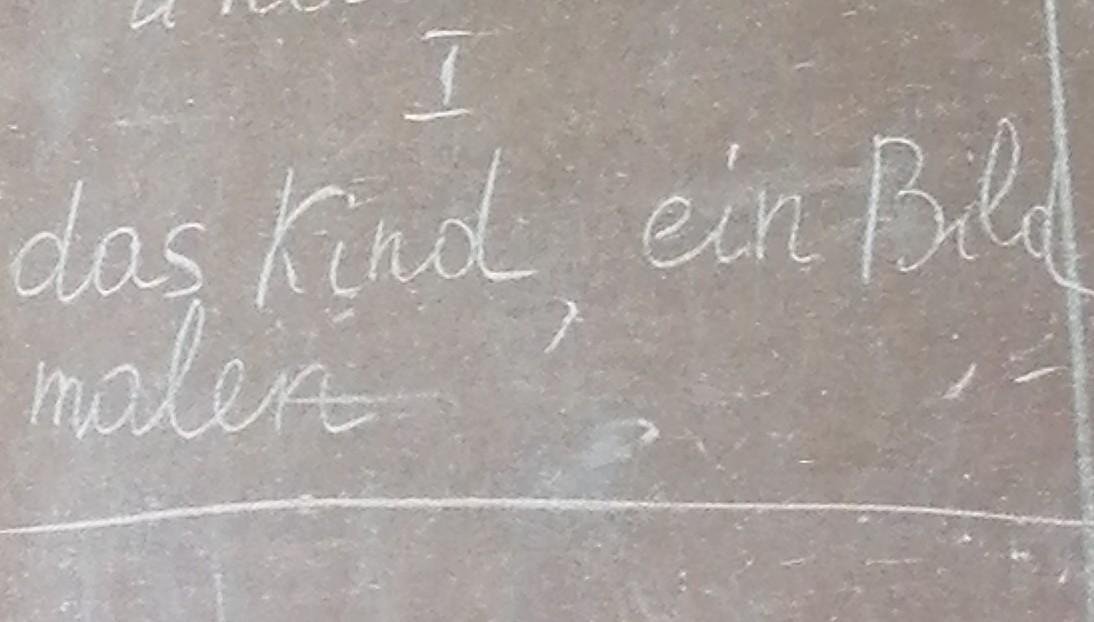 I
das Kind, ein Bild
malen